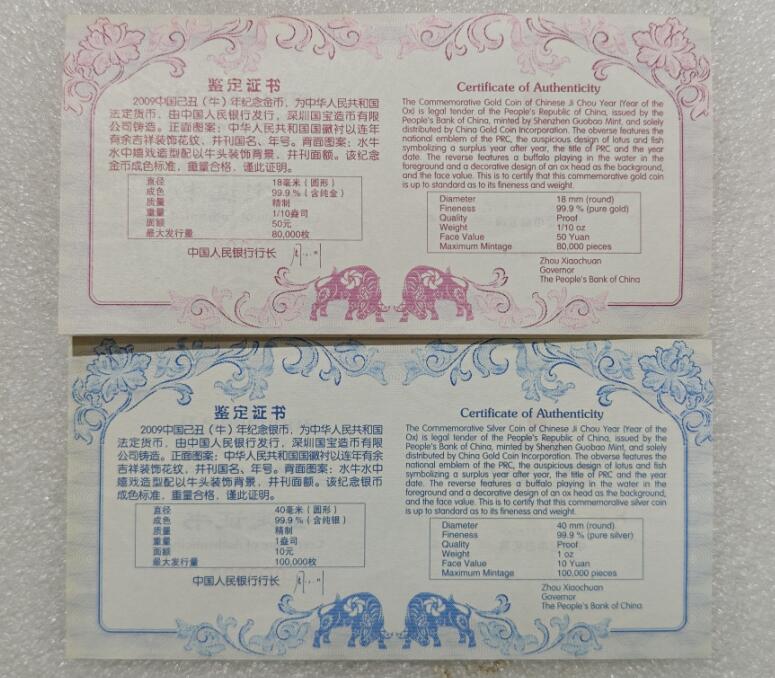 鉴定证书
2009中国己丑（牛）年纪念金币，为中华人民共和国
法定货币，由中国人民银行发行，深圳国宝造币有限
公司铸造。正面图案：中华人民共和国国徽衬以连年
有余吉祥装饰花纹，并刊国名、年号。背面图案：水牛
水中嬉戏造型配以牛头装饰背景，并刊面额。该纪念
金币成色标准，重量合格，谨此证明。
直径 18毫米（圆形）
成色 99.9％（含纯金）
质量 精制
重量 1/10盎司
面额 50元
最大发行量 80,000枚
中国人民银行行长
Certificate of Authenticity
The Commemorative Gold Coin of Chinese Ji Chou Year (Year of the
Ox) is legal tender of the People's Republic of China, issued by the
People's Bank of China, minted by Shenzhen Guobao Mint, and solely
distributed by China Gold Coin Incorporation. The obverse features the
national emblem of the PRC, the auspicious design of lotus and fish
symbolizing a surplus year after year, the title of PRC and the year
date. The reverse features a buffalo playing in the water in the
foreground and a decorative design of an ox head as the background,
and the face value. This is to certify that this commemorative gold coin
is up to standard as to its fineness and weight.
Diameter 18 mm (round)
Fineness 99.9 % (pure gold)
Quality Proof
Weight 1/10 oz
Face Value 50 Yuan
Maximum Mintage 80,000 pieces
Zhou Xiaochuan
Governor
The People's Bank of China
鉴定证书
2009中国己丑（牛）年纪念银币，为中华人民共和国
法定货币，由中国人民银行发行，深圳国宝造币有限
公司铸造。正面图案：中华人民共和国国徽衬以连年有余
吉祥装饰花纹，并刊国名、年号。背面图案：水牛水中
嬉戏造型配以牛头装饰背景，并刊面额。该纪念银币
成色标准，重量合格，谨此证明。
直径 40毫米（圆形）
成色 99.9％（含纯银）
质量 精制
重量 1盎司
面额 10元
最大发行量 100,000枚
中国人民银行行长
Certificate of Authenticity
The Commemorative Silver Coin of Chinese Ji Chou Year (Year of the
Ox) is legal tender of the People's Republic of China, issued by the
People's Bank of China, minted by Shenzhen Guobao Mint, and solely
distributed by China Gold Coin Incorporation. The obverse features the
national emblem of the PRC, the auspicious design of lotus and fish
symbolizing a surplus year after year, the title of PRC and the year
date. The reverse features a buffalo playing in the water in the
foreground and a decorative design of an ox head as the background,
and the face value. This is to certify that this commemorative silver coin
is up to standard as to its fineness and weight.
Diameter 40 mm (round)
Fineness 99.9 % (pure silver)
Quality Proof
Weight 1 oz
Face Value 10 Yuan
Maximum Mintage 100,000 pieces
Zhou Xiaochuan
Governor
The People's Bank of China